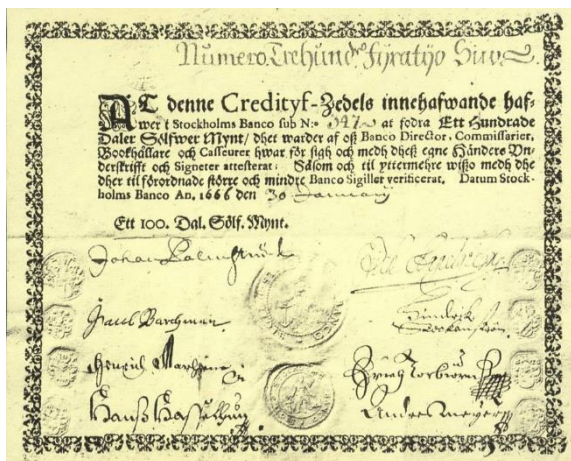 Numero. Trehund:ro Fyratijo Siu
AT denne Credityf-Zedels innehafwande haf-
wer i Stockholms Banco sub N:o 347 at fodra Ett Hundrade
Daler Sölfwer Mynt/ dhet warder af oß Banco Director, Commissarier,
Bookhållare och Casseurer hwar för sigh och medh dheß egne Händers Vn-
derskrifft och Signeter attesterat; Såsom och til yttermehre wißo medh dhe
dher til förordnade större och mindre Banco Sigiller verificerat. Datum Stock-
holms Banco An. 1666 den 30 January
Ett 100. Dal. Sölf. Mynt.
Johan Palmstruck
Jacob Barchman
Hindrik
Henrich
Hanß
Andres Meyer